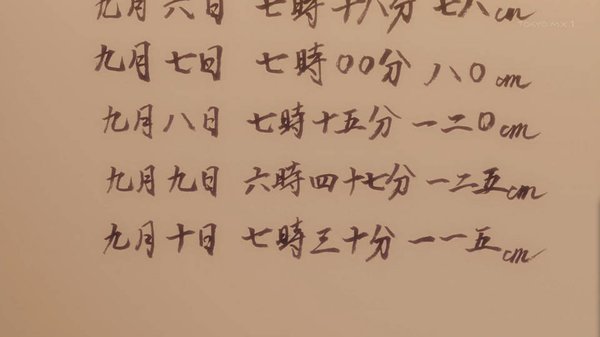 TOKYO MX 1
九月六日 七時十八分 七八cm
九月七日 七時〇〇分 八〇cm
九月八日 七時十五分 一二〇cm
九月九日 六時四十七分 一二五cm
九月十日 七時三十分 一一五cm